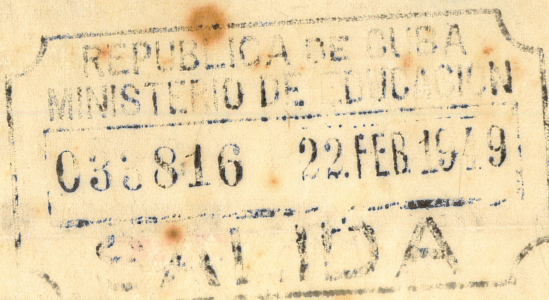 REPUBLICA DE CUBA
MINISTERIO DE EDUCACION
22.FEB.1949
SALIDA